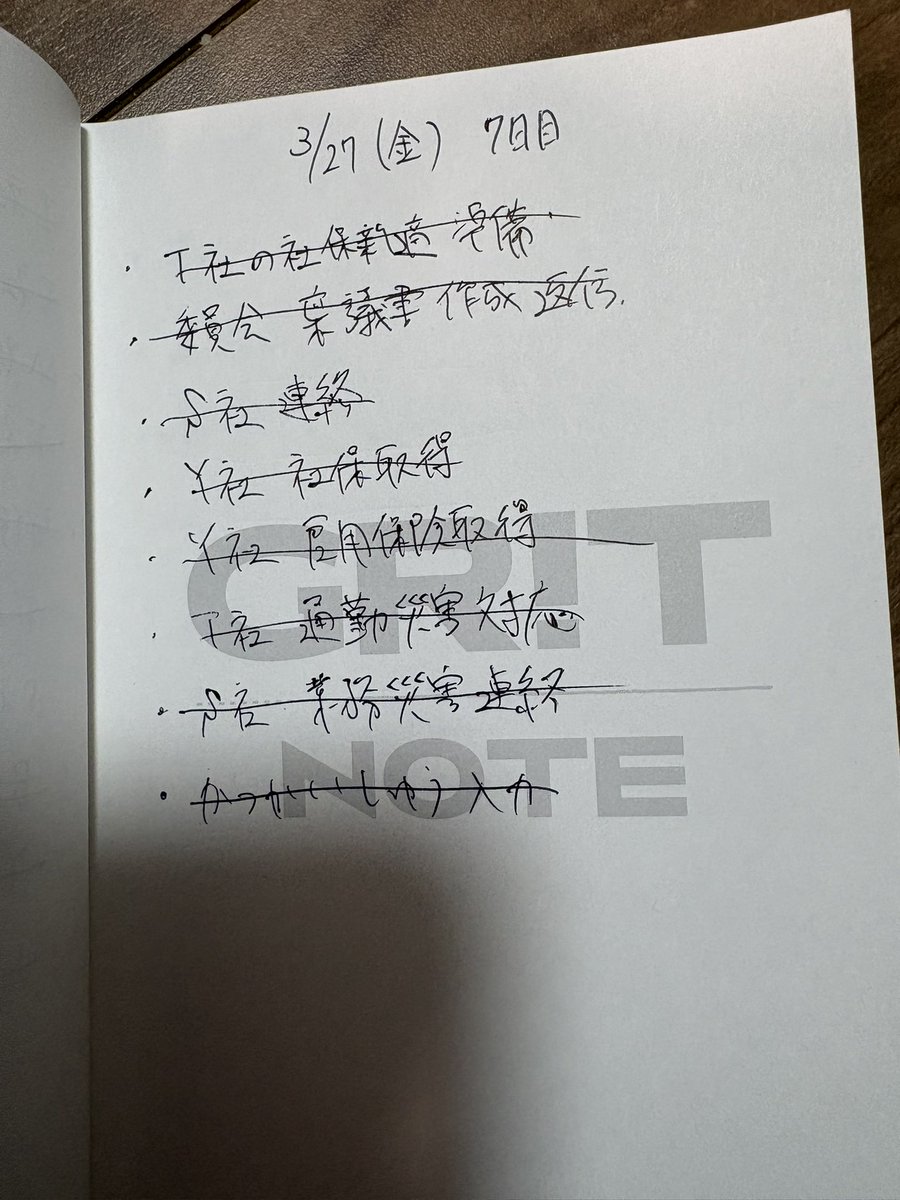 3/27(金) 7日目
・T社の社保新適 準備
・委員会 稟議書 作成返信.
・S社 連絡
・Y社 社保取得
・Y社 雇用保険取得
・T社 通勤災害対応
・S社 業務災害連絡
・かっかいしゅう入力
GRIT
NOTE